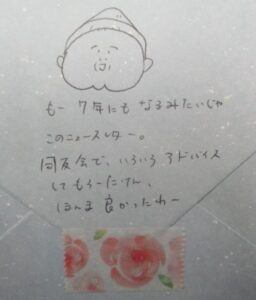 もー7年にも なるみたいじゃ
このニュースレター。
同友会で、いろいろアドバイス
してもろーたけん、
ほんま良かったわー